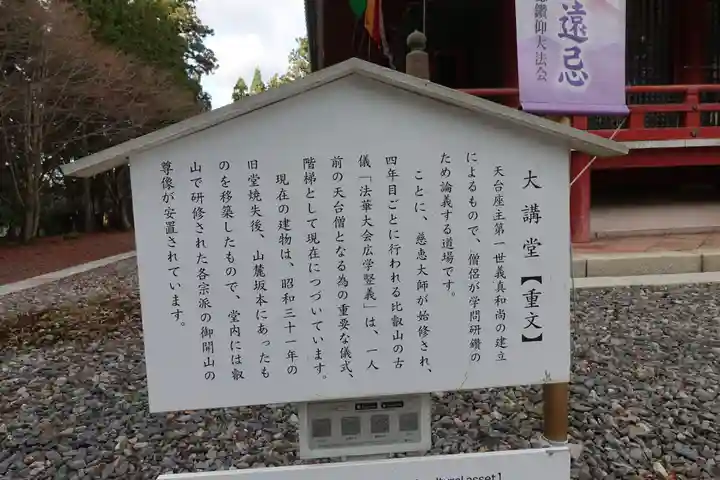 大講堂【重文】
天台座主第一世義真和尚の建立
によるもので、僧侶が学問研鑽の
ため論義する道場です。
ことに、慈恵大師が始修され、
四年目ごとに行われる比叡山の古
儀「法華大会広学竪義」は、一人
前の天台僧となる為の重要な儀式、
階梯として現在につづいています。
現在の建物は、昭和三十一年の
旧堂焼失後、山麓坂本にあったも
のを移築したもので、堂内には叡
山で研修された各宗派の御開山の
尊像が安置されています。
遠忌
鑽仰大法会